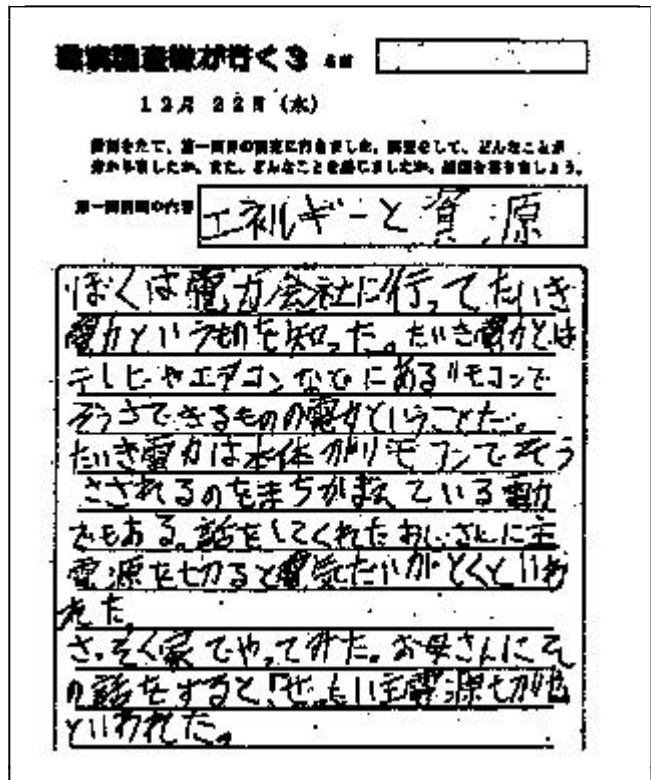 が行く3 名前
12月22日(水)
計画をたて、第一回目の調査に行きました。調査をして、どんなことが
分かりましたか。また、どんなことを感じましたか。感想を書きましょう。
第一回調査の内容
エネルギーと資源
ぼくは電力会社に行ってたいき
電力というものを知った。たいき電力とは
テレビやエアコンなどにあるリモコンで
そうさできるものの電力ということだ。
たいき電力は本体がリモコンでそう
さされるのをまちかまえている電力
でもある。話をしてくれたおじさんに主
電源を切ると電気だいがとくといわ
れた。
さっそく家でやってみた。お母さんにそ
の話をすると、「ぜったい主電源切ってね
といわれた。